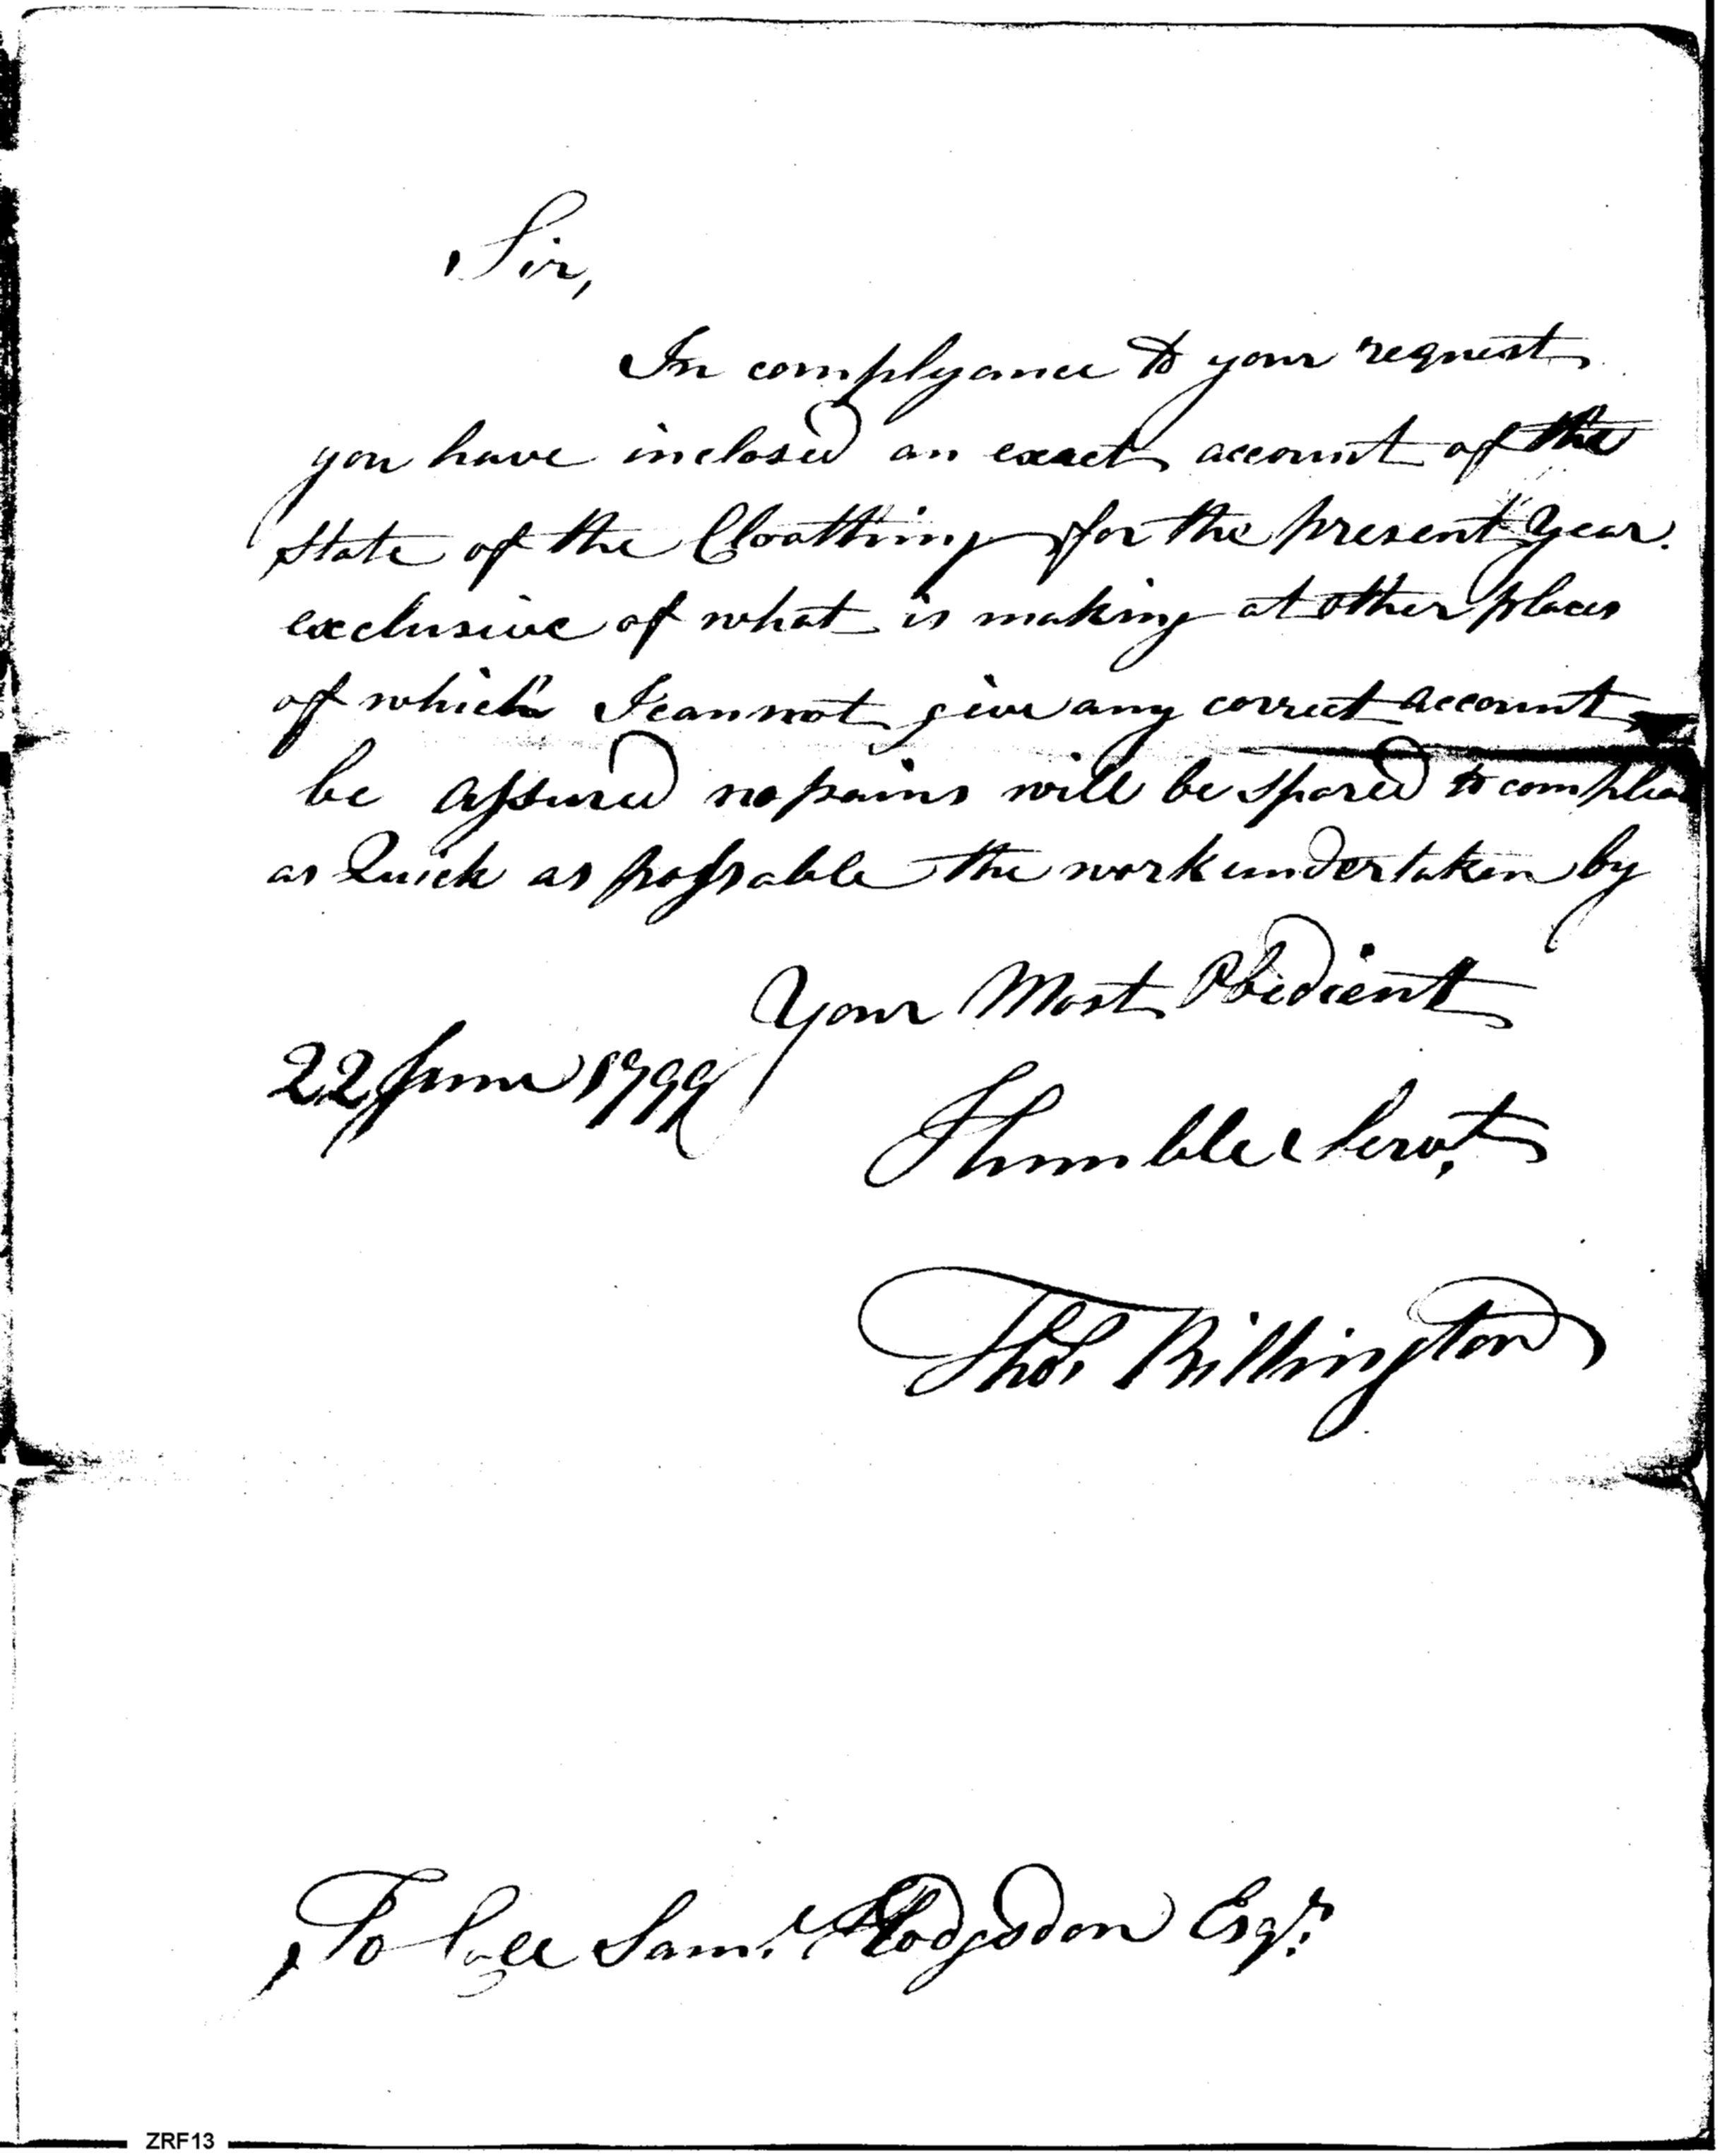 Sir,
In complyance to your request
you have inclosed an exact account of the
State of the Cloathing for the present Year.
exclusive of what is making at other places
of which I cannot give any correct account
be assured no pains will be spared to compleat
as Quick as possable the work undertaken by
Your Most Obedient
22 June 1799
Humble Servt
Thos Billington
To Coll Saml Hodgsdon Esqr
ZRF13